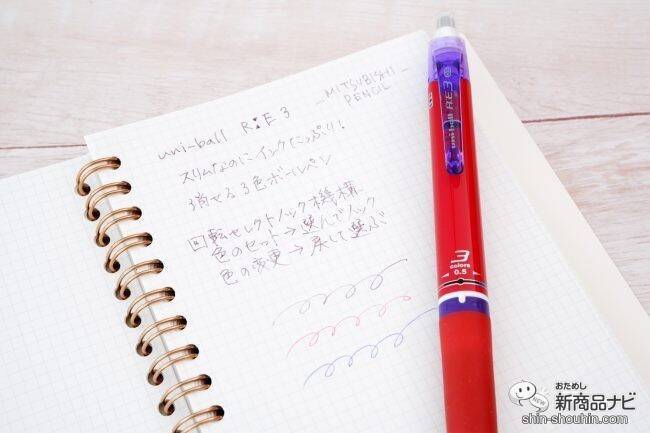 MITSUBISHI
PENCIL
uni-ball R:E 3
スリムなのにインクたっぷり!
消せる3色ボールペン
回転セレクトノック機構
色のセット→選んでノック
色の変更→戻して選ぶ
uni-ball R:E 3
3
colors
0.5
おためし
新商品ナビ
shin-shouhin.com